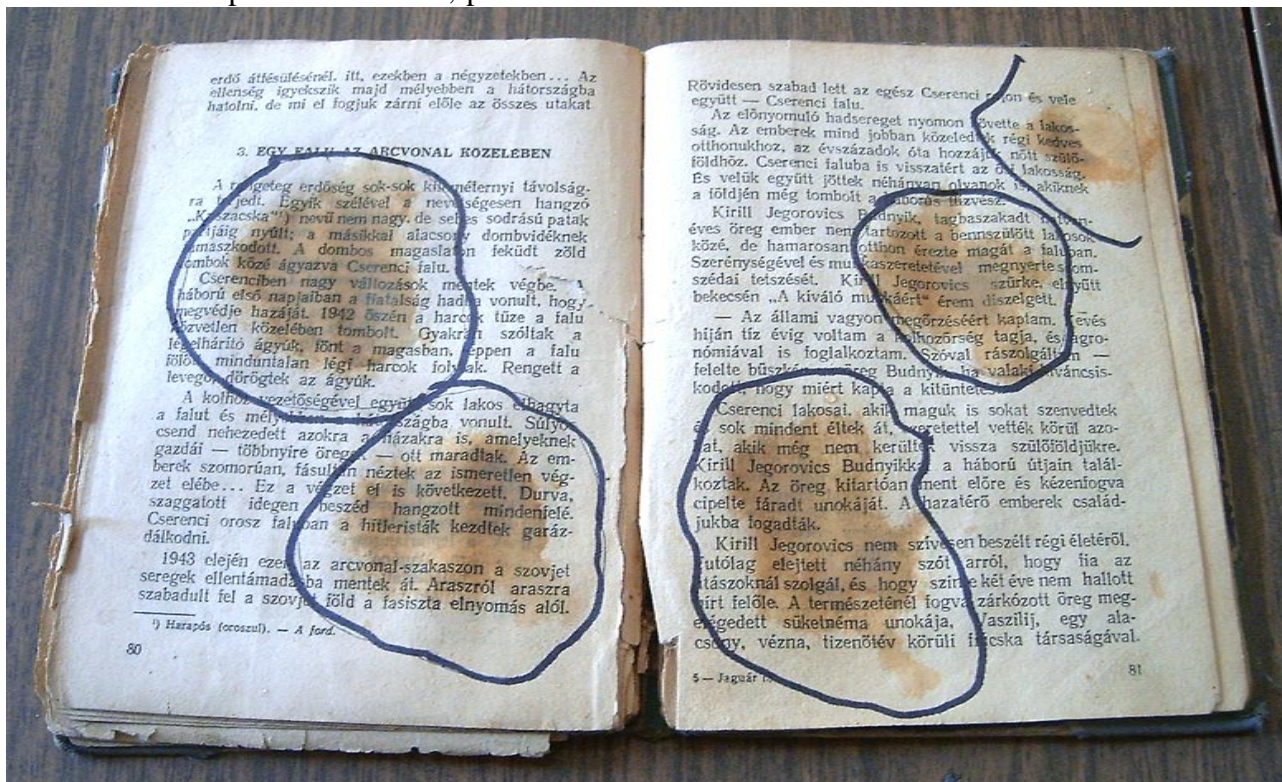 erdő átfésülésénél. itt, ezekben a négyzetekben... Az
ellenség igyekszik majd mélyebben a hátországba
hatolni, de mi el fogjuk zárni előle az összes utakat
3. EGY FALU AZ ARCVONAL KÖZELÉBEN
A rengeteg erdőség sok-sok kilométernyi távolság-
ra terjedt. Egyik szélével a nevetségesen hangzó
„Kuszacska"¹) nevű nem nagy, de sebes sodrású patak
partjáig nyúlt; a másikkal alacsony dombvidéknek
támaszkodott. A dombos magaslaton feküdt zöld
lombok közé ágyazva Cserenci falu.
Cserenciben nagy változások mentek végbe. A
háború első napjaiban a fiatalság hadba vonult, hogy
megvédje hazáját. 1942 őszén a harcok tüze a falu
közvetlen közelében tombolt. Gyakran szóltak a
légelhárító ágyúk, fönt a magasban, éppen a falu
fölött minduntalan légi harcok folytak. Rengett a
levegő, dörögtek az ágyúk.
A kolhoz vezetőségével együtt sok lakos elhagyta
a falut és mélyebben a hátországba vonult. Súlyos
csend nehezedett azokra a házakra is, amelyeknek
gazdái — többnyire öregek — ott maradtak. Az em-
berek szomorúan, fásultan néztek az ismeretlen vég-
zet elébe... Ez a végzet el is következett. Durva,
szaggatott idegen beszéd hangzott mindenfelé.
Cserenci orosz faluban a hitleristák kezdtek garáz-
dálkodni.
1943 elején ezen az arcvonal-szakaszon a szovjet
seregek ellentámadásba mentek át. Araszról araszra
szabadult fel a szovjet föld a fasiszta elnyomás alól.
¹) Harapós (oroszul). — A ford.
80
Rövidesen szabad lett az egész Cserenci rajon és vele
együtt — Cserenci falu.
Az előnyomuló hadsereget nyomon követte a lakos-
ság. Az emberek mind jobban közeledtek régi kedves
otthonukhoz, az évszázadok óta hozzájuk nőtt szülő-
földhöz. Cserenci faluba is visszatért az ősi lakosság.
És velük együtt jöttek néhányan olyanok is, akiknek
a földjén még tombolt a háborús tűzvész.
Kirill Jegorovics Budnyik, tagbaszakadt hatvan-
éves öreg ember nem tartozott a bennszülött lakosok
közé, de hamarosan otthon érezte magát a faluban.
Szerénységével és munkaszeretetével megnyerte szom-
szédai tetszését. Kirill Jegorovics szürke, elnyűtt
bekecsén „A kiváló munkáért" érem díszelgett.
— Az állami vagyon megőrzéséért kaptam. Kevés
híján tíz évig voltam a kolhozőrség tagja, és agro-
nómiával is foglalkoztam. Szóval rászolgáltam —
felelte büszkén az öreg Budnyik, ha valaki kíváncsis-
kodott, hogy miért kapta a kitüntetést.
Cserenci lakosai, akik maguk is sokat szenvedtek
és sok mindent éltek át, szeretettel vették körül azo-
kat, akik még nem kerültek vissza szülőföldjükre.
Kirill Jegorovics Budnyikkal a háború útjain talál-
koztak. Az öreg kitartóan ment előre és kézenfogva
cipelte fáradt unokáját. A hazatérő emberek család-
jukba fogadták.
Kirill Jegorovics nem szívesen beszélt régi életéről.
Futólag elejtett néhány szót arról, hogy fia az
utászoknál szolgál, és hogy szinte két éve nem hallott
hírt felőle. A természeténél fogva zárkózott öreg meg-
elégedett süketnéma unokája, Vaszilij, egy ala-
csony, vézna, tizenötév körüli fiúcska társaságával.
5 — Jaguár
81